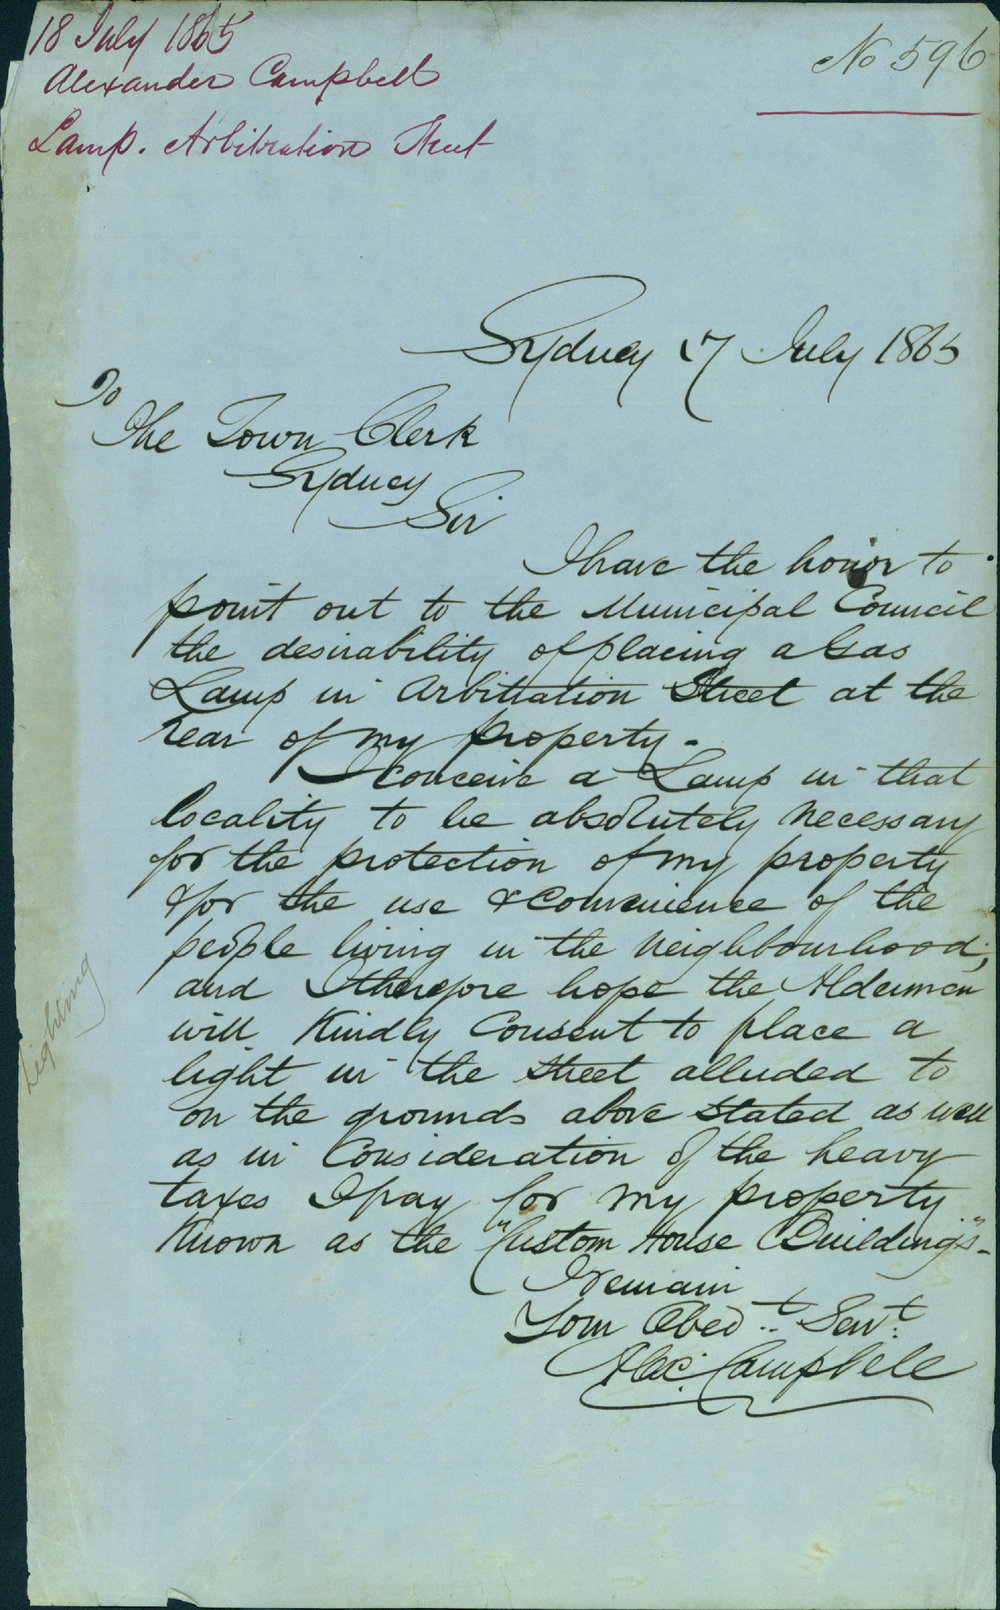 18 July 1865
Alexander Campbell
Lamp. Arbitration Street
No 596
Sydney 17 July 1865
To
The Town Clerk
Sydney
Sir
I have the honor to
point out to the Municipal Council
the desirability of placing a Gas
Lamp in Arbitration Street at the
rear of my property.
I conceive a Lamp in that
locality to be absolutely necessary
for the protection of my property
& for the use & convenience of the
people living in the neighbourhood;
and I therefore hope the Aldermen
will Kindly Consent to place a
light in the Street alluded to
on the grounds above stated as well
as in Consideration of the heavy
taxes I pay for my property
Known as the "Custom House Buildings"-
I remain
Your Obedt. Servt.
Alex. Campbell
Lighting